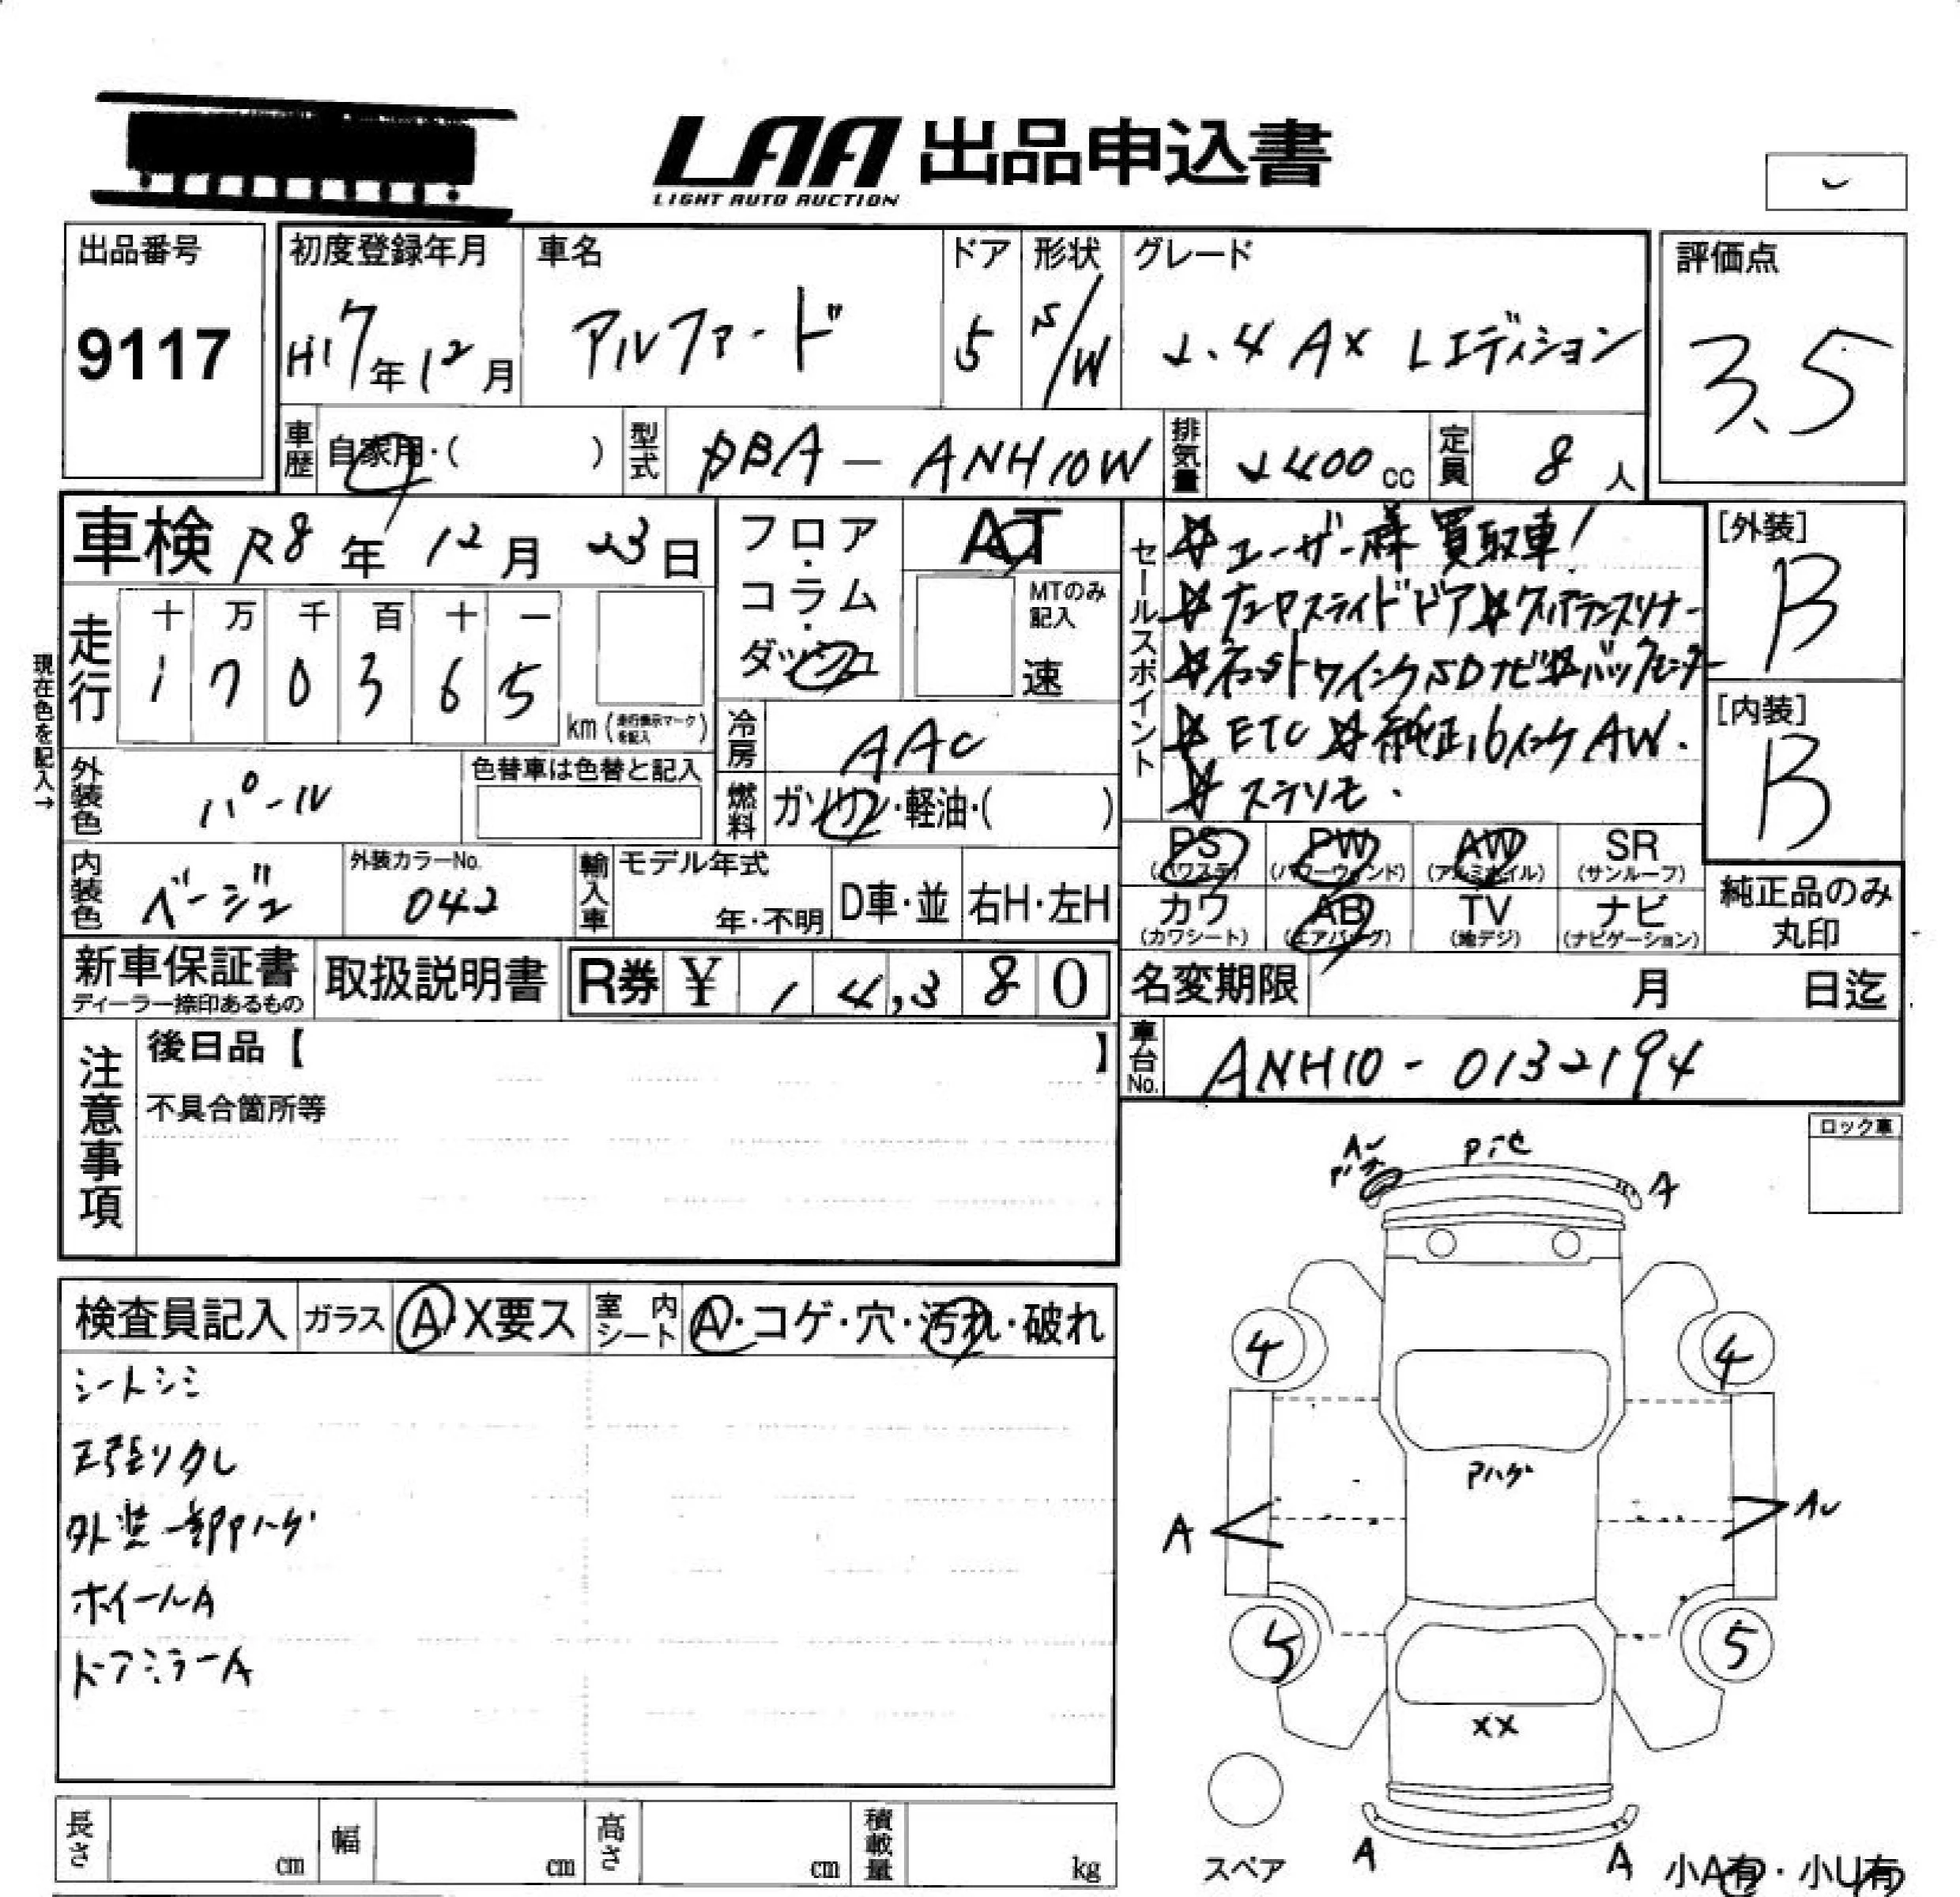 LAA 出品申込書
LIGHT AUTO AUCTION
出品番号
9117
初度登録年月
H17年12月
車名
アルファード
ドア
5
形状
S/W
グレード
2.4 AX Lエディション
評価点
3.5
車歴
自家用・( )
型式
DBA-ANH10W
排気量
2400cc
定員
8人
車検 R8年12月23日
フロア・コラム・ダッシュ
AT
MTのみ記入
速
現在色を記入→
走行
十 万 千 百 十 一
1 7 0 3 6 5
km (走行表示マークを記入)
冷房
AAC
外装色
パール
色替車は色替と記入
燃料
ガソリン・軽油・( )
内装色
ベージュ
外装カラーNo.
042
輸入車
モデル年式
年・不明
D車・並
右H・左H
セールスポイント
☆ユーザー様買取車!
スライドドア ☆クリアランスソナー
SDナビ
☆ETC ☆純正16インチAW.
☆ステリモ.
[外装]
B
[内装]
B
PS (パワステ)
PW (パワーウィンド)
AW (アルミホイル)
SR (サンルーフ)
カワ (カワシート)
AB (エアバッグ)
TV (地デジ)
ナビ (ナビゲーション)
純正品のみ丸印
新車保証書
ディーラー捺印あるもの
取扱説明書
R券 ¥ 14,380
名変期限 月 日迄
車台No.
ANH10-0132194
注意事項
後日品【 】
不具合箇所等
ロック車
検査員記入
ガラス
A・X要ス
室内シート
A・コゲ・穴・汚れ・破れ
シートシミ
外装一部Pハゲ
ホイールA
ドアミラーA
A
4
4
Pハゲ
A
5
5
XX
スペア
A
A
小A有・小U有
長さ cm
幅 cm
高さ cm
積載量 kg